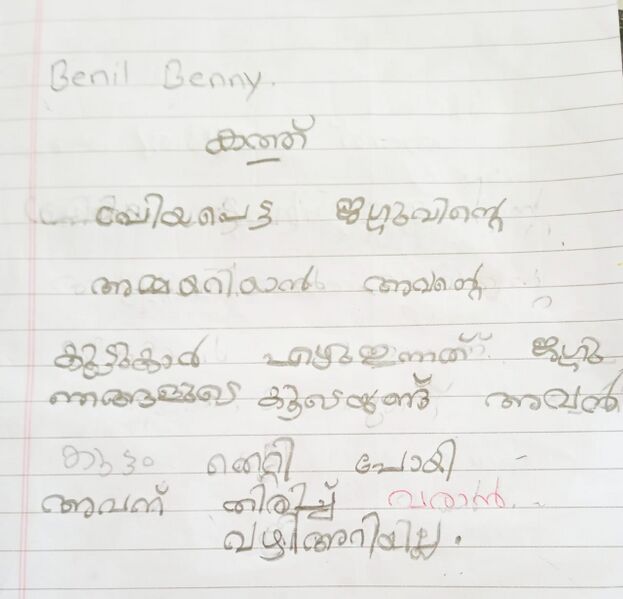 Benil Benny.
കത്ത്
പ്രിയപ്പെട്ട ജഗ്ഗുവിന്റെ
അമ്മയറിയാൻ അവന്റെ
കൂട്ടുകാർ എഴുതുന്നത് ജഗ്ഗു
ഞങ്ങളുടെ കൂടെയുണ്ട് അവൻ
കൂട്ടം തെറ്റി പോയി
അവന് തിരിച്ച് വരാൻ
വഴിഅറിയില്ല.